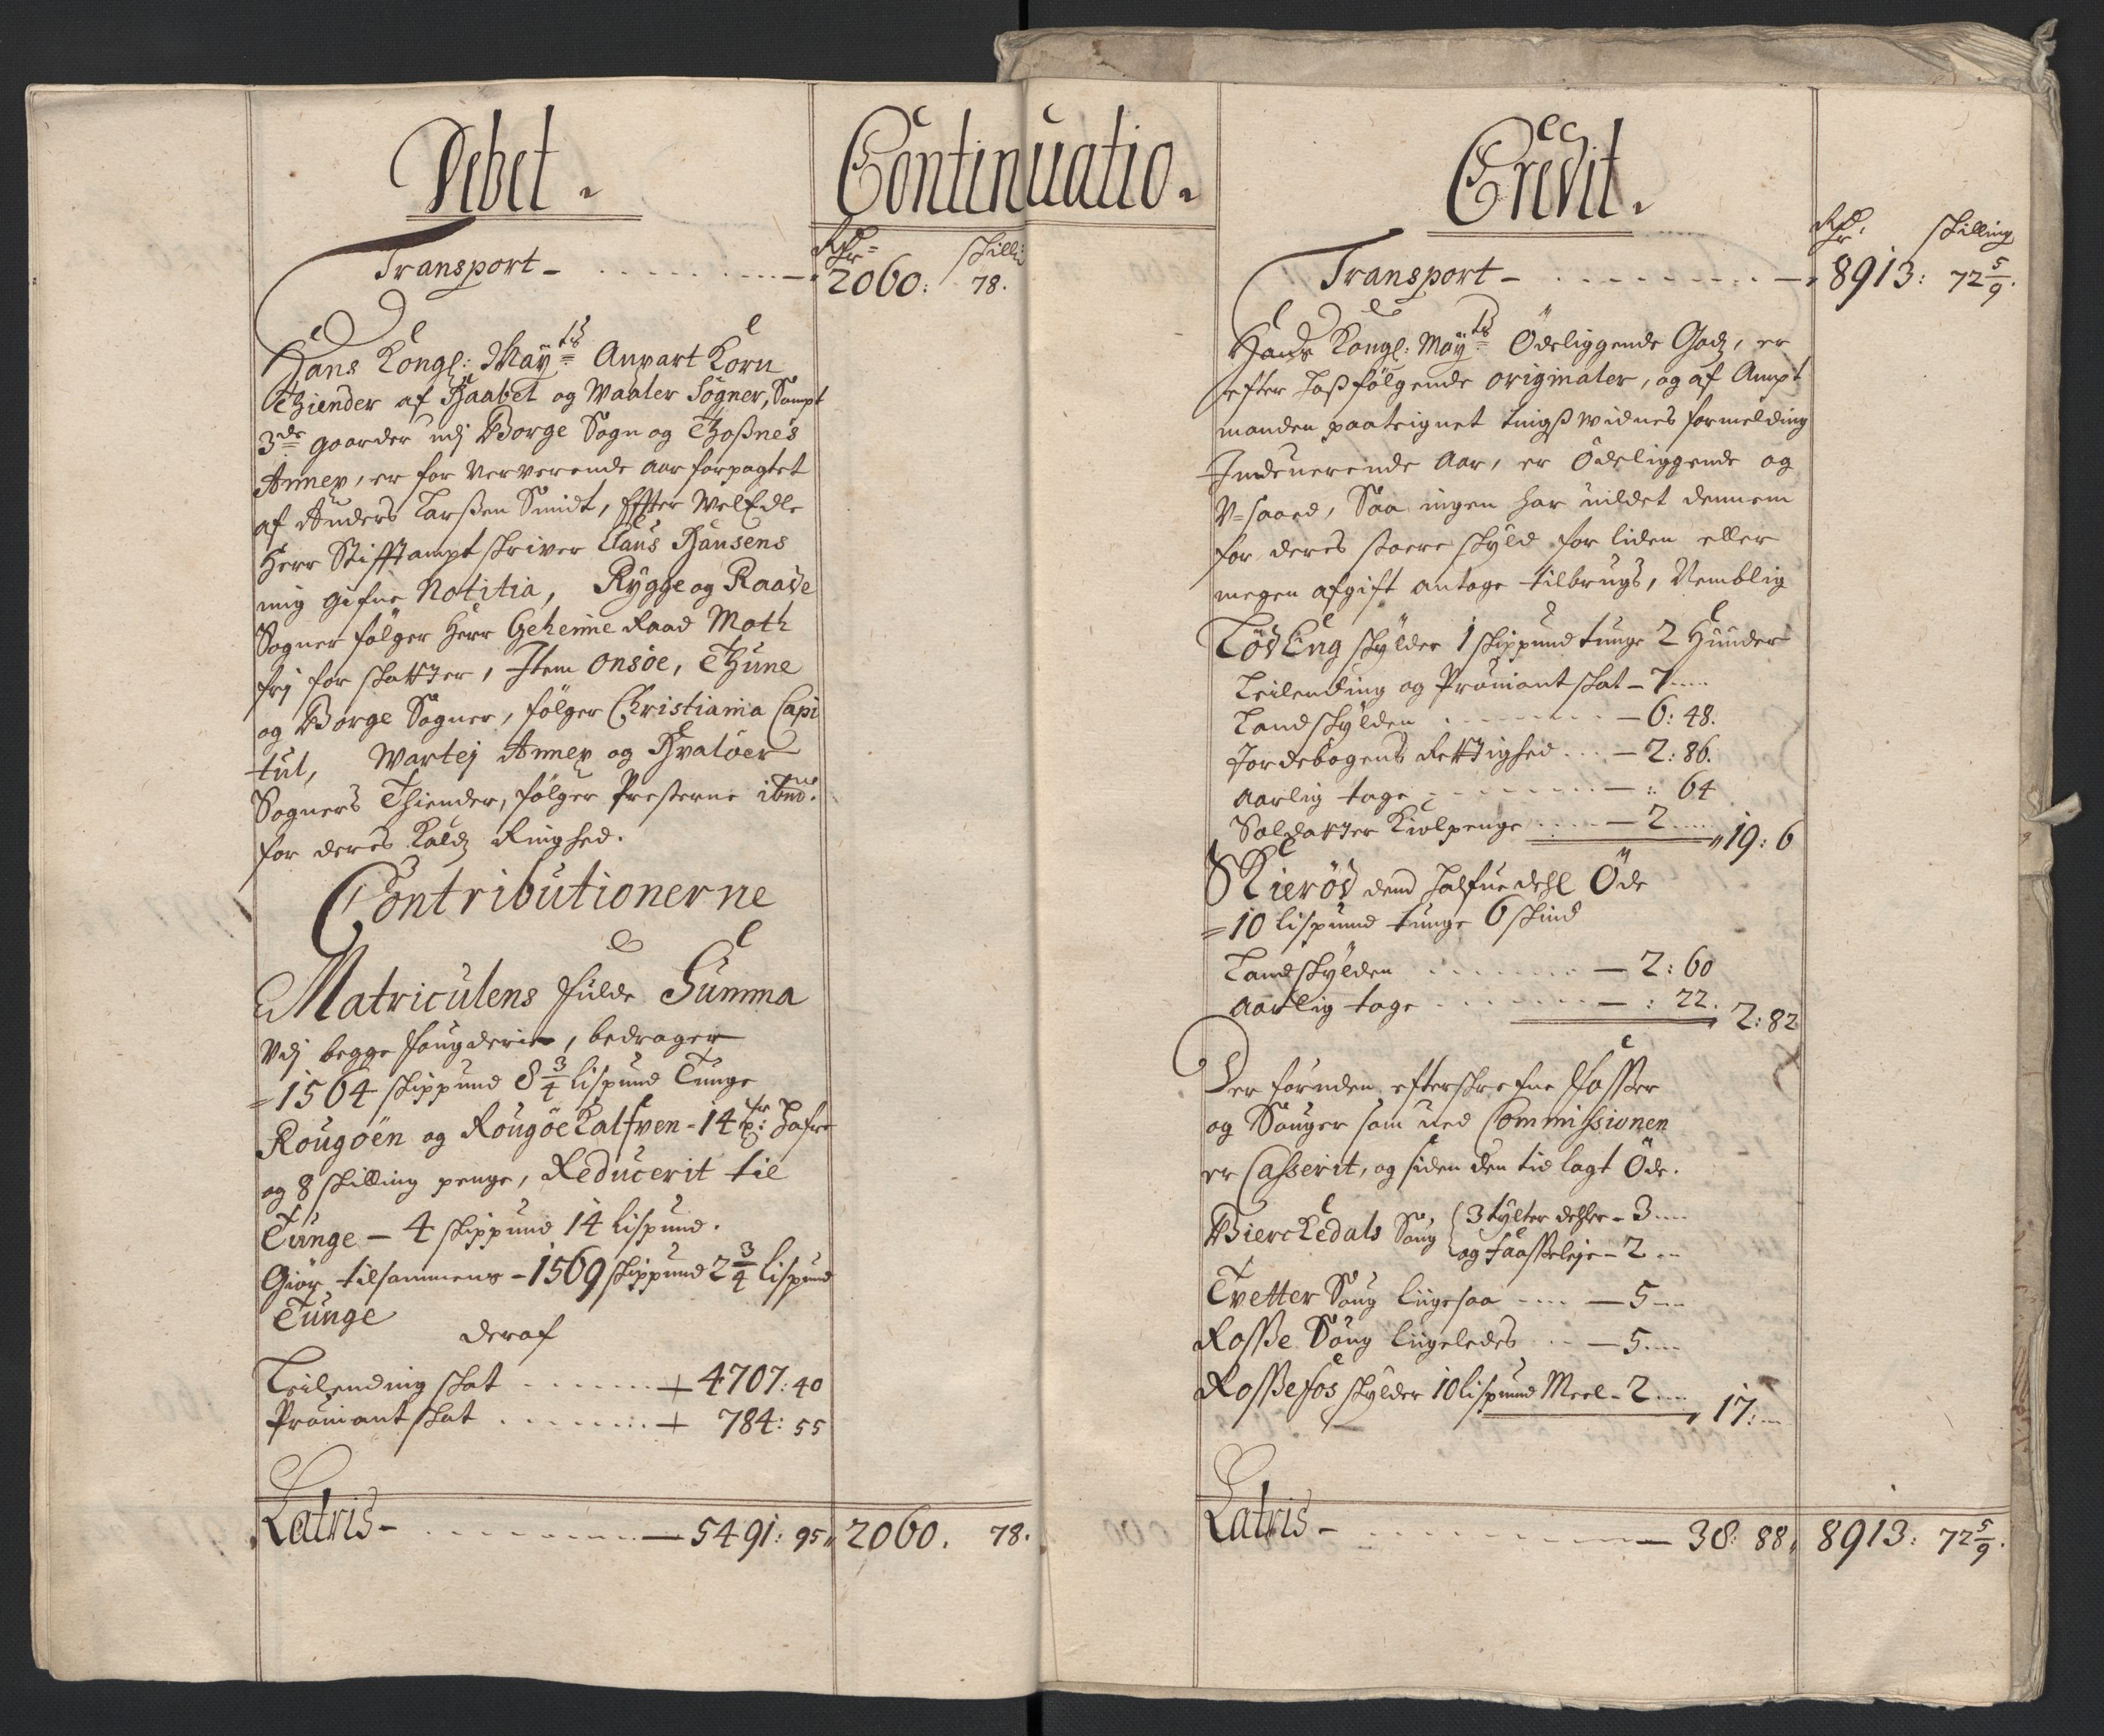 Debet.
Continuatio.
Rdr skilling
Transport - 2060: 78.
Hans Kongl: Mayts Anpart Korn
Thiender af Haabel og Waaler Sogner, Sampt
3de gaarder udj Borge Sogn og Thoßnes
Annex, er for Nerverende aar forpagtet
af Anders Larßen Smidt, Effter WelEdle
Herr Stifftamptskriver Claus Hansens
mig gifne Notitia, Rygge og Raade
Sogner følger Herr Geheime Raad Moth
frj for skatter, Item Onsøe, Thune
og Borge Sogner, følger Christiania Capi
tul, Wartej Annex og Hvaløer
Sogners Thiender, følger Presterne ibm:
for deres Kaldz Ringhed.
Contributionerne
Matriculens fulde Summa
Vdj begge fougderier, bedrager
= 1564 skippund 8 3/4 Lispund Tunge
Rougøen og RougøeKalfven - 14 hafre
og 8 skilling penge, Reducerit til
Tunge - 4 skippund 14 Lispund.
Giør tilsammens - 1569 skippund 2 3/4 Lispund
Tunge
deraf
Leilending skat - 4707: 40
Proviant skat - 784: 55
Latris - 5491: 95 2060. 78.
Credit.
Rdr skilling
Transport - 8913: 72 5/9.
Hans Kongl: Mayts Ödeliggende Godz, er
efter hoßfølgende originaler, og af Ampt
manden paateignet tingßwidnes formelding
Indeverende Aar, er Ödeliggende og
V=saaed, Saa ingen har villet dennem
for deres store skyld for liden eller
megen afgift antage tilbrugs, Nemblig
Löd Eng skylder 1 skippund tunge 2 Huuder
Leilending og Proviant skat - 7 --
Landskylden - 6: 48.
Jordebogens Rettighed - 2: 86.
aarlig tage - : 64
Soldatter Kiolpenge - 2 -- 19: 6
SKierød dend halfue dehl Öde
= 10 Lispund tunge 6 skind
Landskylden - 2: 60
aarlig tage - : 22. 2: 82
Der foruden efterskrefne fosser
og Sauger som ved Commissionen
er Casserit, og siden den tid lagt Öde.
BiercKedals Saug { 3 tylter dehler - 3 --
og faasseleje - 2 --
Tvetter Saug liigesaa - 5 --
Rosse Saug liigeledes - 5 --
Rossefos skylder 10 Lispund Meel - 2 -- 17: --
Latris - 38: 88 8913: 72 5/9.